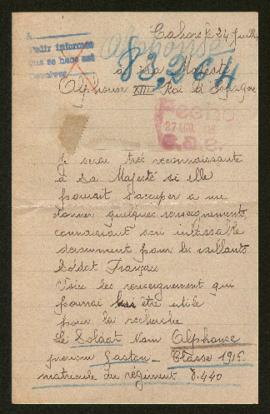 Cahors le 24 Juillet
Alphonse
à Sa Majesté
Pedir informes
que se hace est
83,264
Alphonse XIII Roi d'Espagne
Fecho
Je serai très reconnaissante
à Sa Majesté si elle
pourrait s'occuper a me
donner quelques renseignements
connaissant son inlassable
dévouement pour les vaillants
Soldat Français
Voici les renseignement qui
pourrai être utile
pour la recherche
Le Soldat Nom Alphonse
prenom Gaston Classe 1915
matricule du régiment 8.440